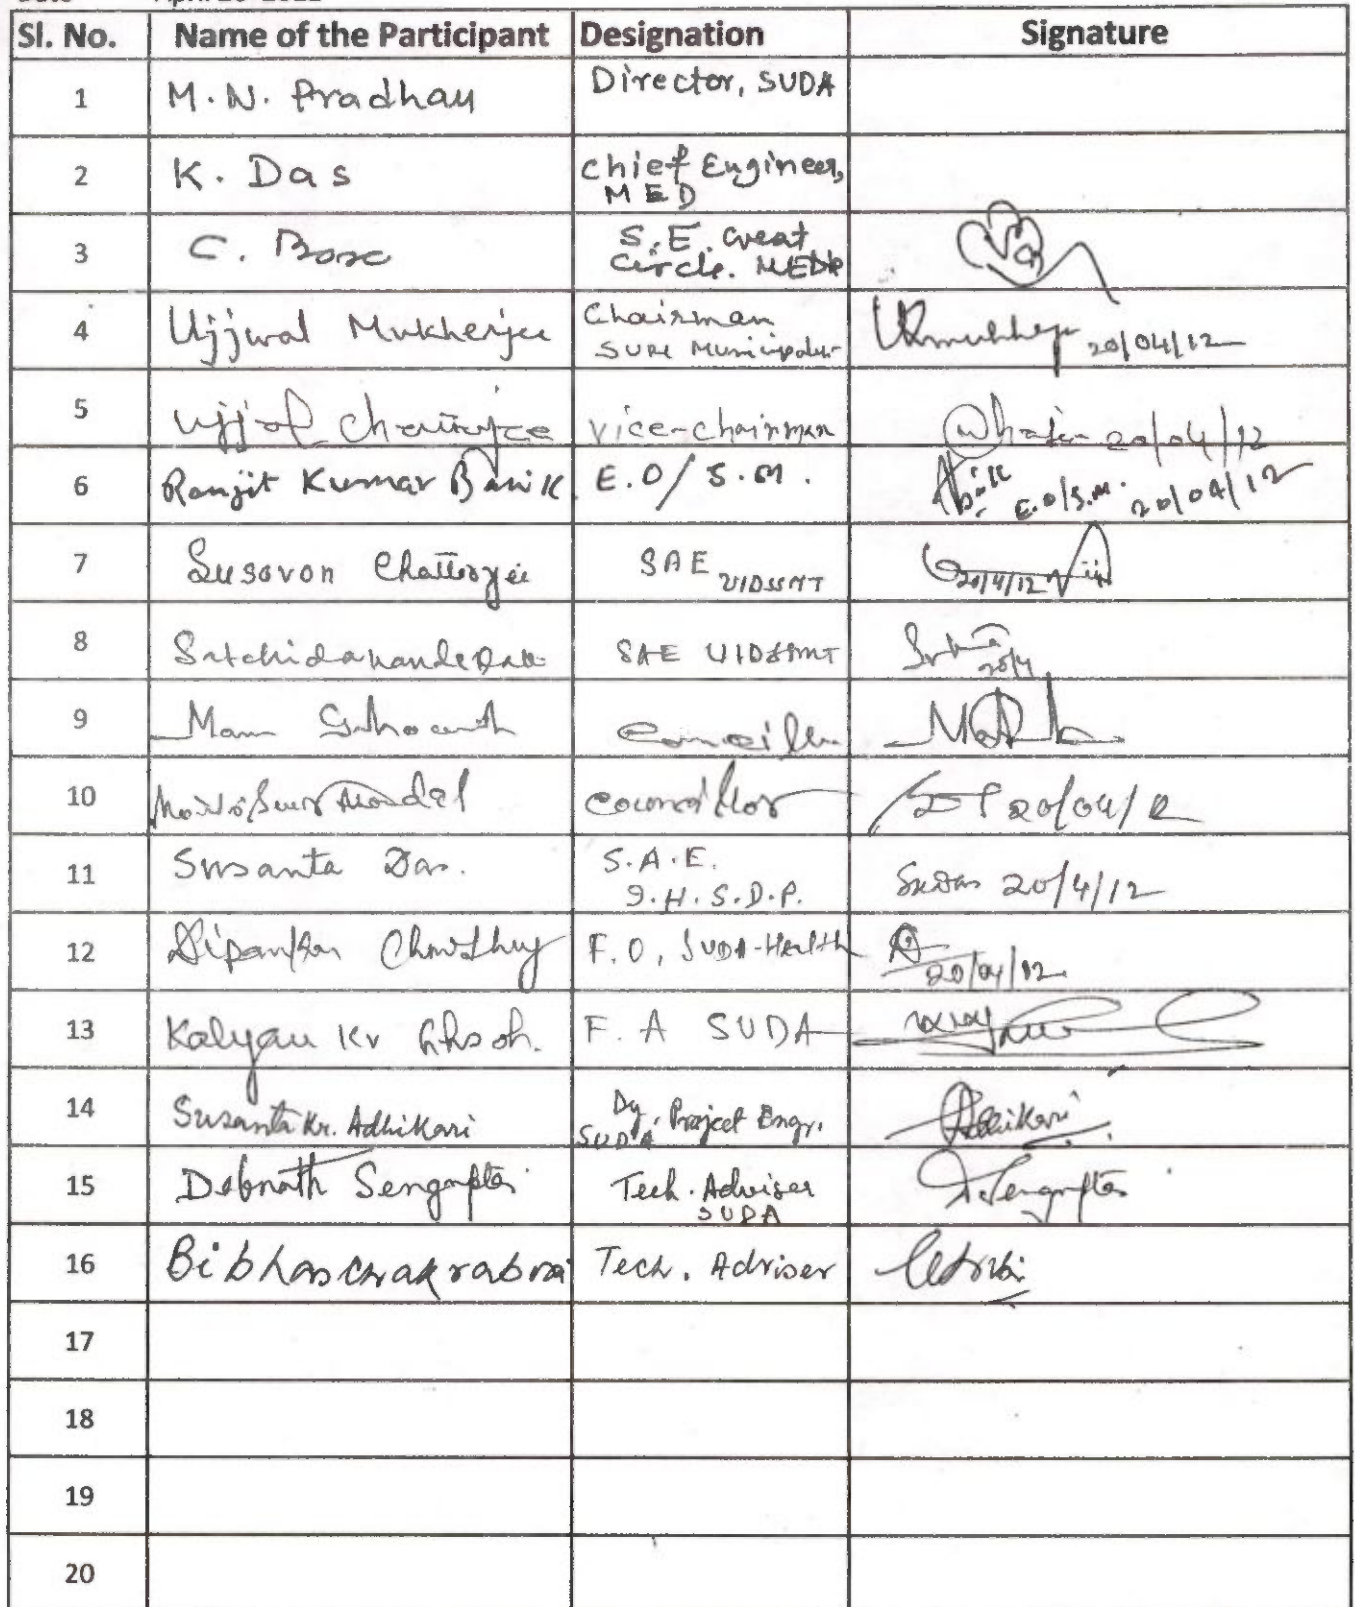 Sl. No. Name of the Participant Designation Signature
1 M. N. Pradhan Director, SUDA
2 K. Das Chief Engineer,
MED
3 C. Bose S.E. West
Circle. MED
4 Ujjwal Mukherjee Chairman
Suri 20/04/12
5 Ujjal Chatterjee Vice-chairman 20/04/12
6 Ranjit Kumar Banik E.O/S.M. E.O/S.M. 20/04/12
7 Susovon Chatterjee SAE
UIDSSMT 20/4/12
8 SAE UIDSSMT 20/4
9 Councillor
10 Mondal Councillor 20/04/12
11 Susanta Das. S.A.E.
I.H.S.D.P. SuDas 20/4/12
12 Dipankar Chowdhury F.O, SUDA-Health
20/04/12
13 Kalyan Kr Ghosh. F. A SUDA
14 Susanta Kr. Adhikari Dy. Project Engr.
SUDA Adhikari
15 Debnath Sengupta Tech. Adviser
SUDA D. Sengupta
16 Bibhas Chakraborti Tech. Adviser
17
18
19
20